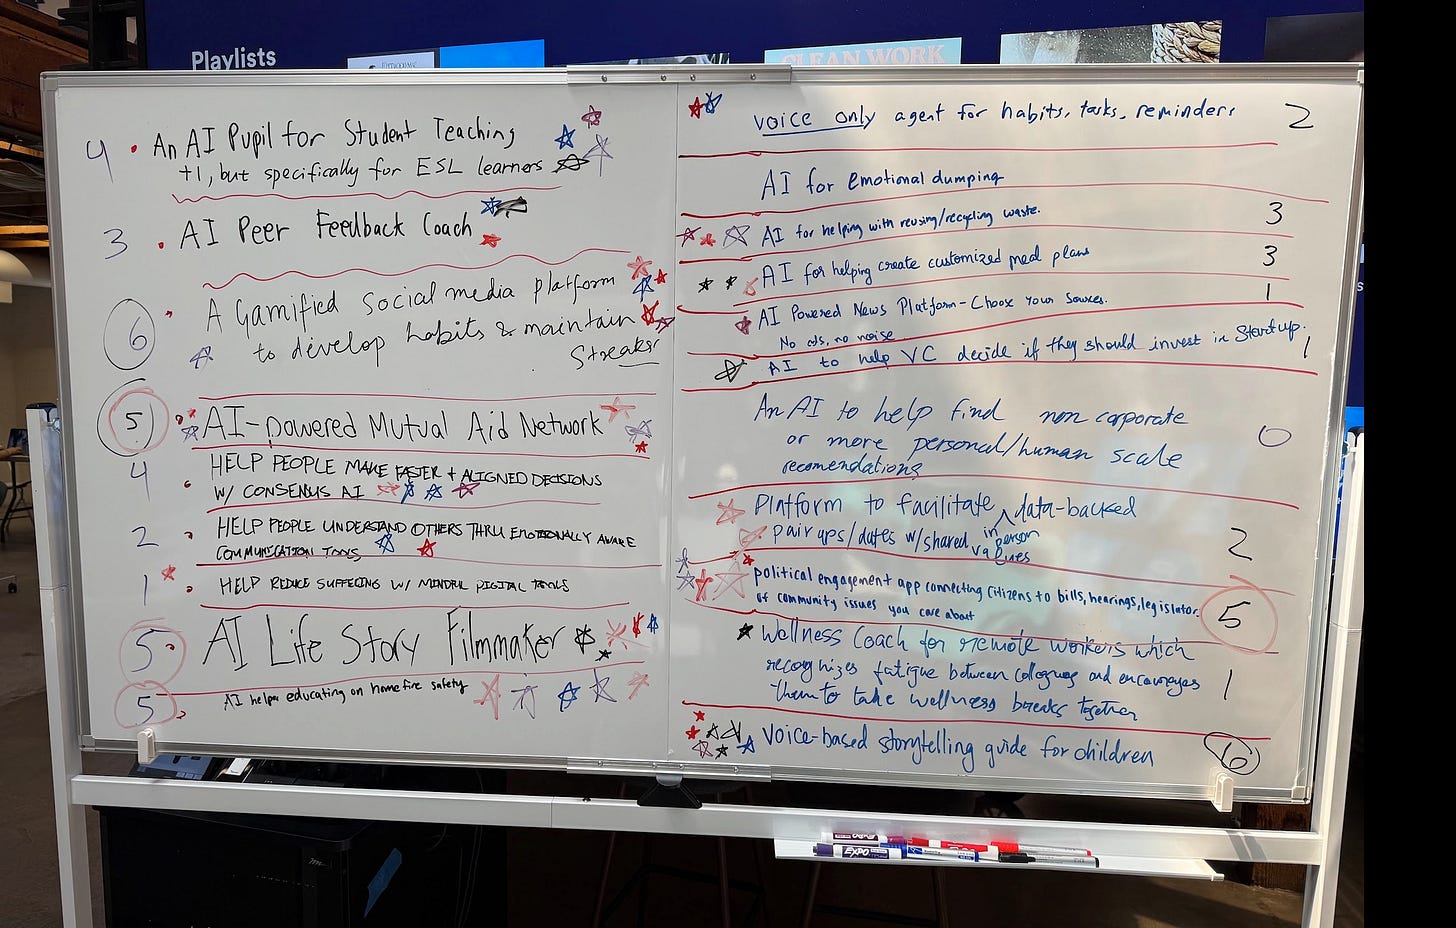 Playlists
CLEAN WORK
4 • An AI Pupil for Student Teaching
+1, but specifically for ESL learners
3 • AI Peer Feedback Coach
6 • A Gamified Social media platform
to develop habits & maintain
Streaks
5 • AI-powered Mutual Aid Network
4 • HELP PEOPLE MAKE FASTER + ALIGNED DECISIONS
W/ CONSENUS AI
2 • HELP PEOPLE UNDERSTAND OTHERS THRU EMOTIONALLY AWARE
COMMUNICATION TOOLS
1 • HELP REDUCE SUFFERING W/ MINDFUL DIGITAL TOOLS
5 • AI Life Story Filmmaker
5 • AI helper educating on home fire safety
voice only agent for habits, tasks, reminders 2
AI for emotional dumping
AI for helping with reusing/recycling waste. 3
AI for helping create customized meal plans 3
AI Powered News Platform - Choose Your Sources. 1
No ads, no noise
AI to help VC decide if they should invest in Startup. 1
An AI to help find non corporate
or more personal/human scale 0
recomendations
Platform to facilitate data-backed
in person
pair ups/dates w/shared values 2
political engagement app connecting citizens to bills, hearings, legislator
of community issues you care about 5
Wellness Coach for remote workers which
recognizes fatigue between colleagues and encourages
them to take wellness breaks together 1
Voice-based storytelling guide for children 6
EXPO